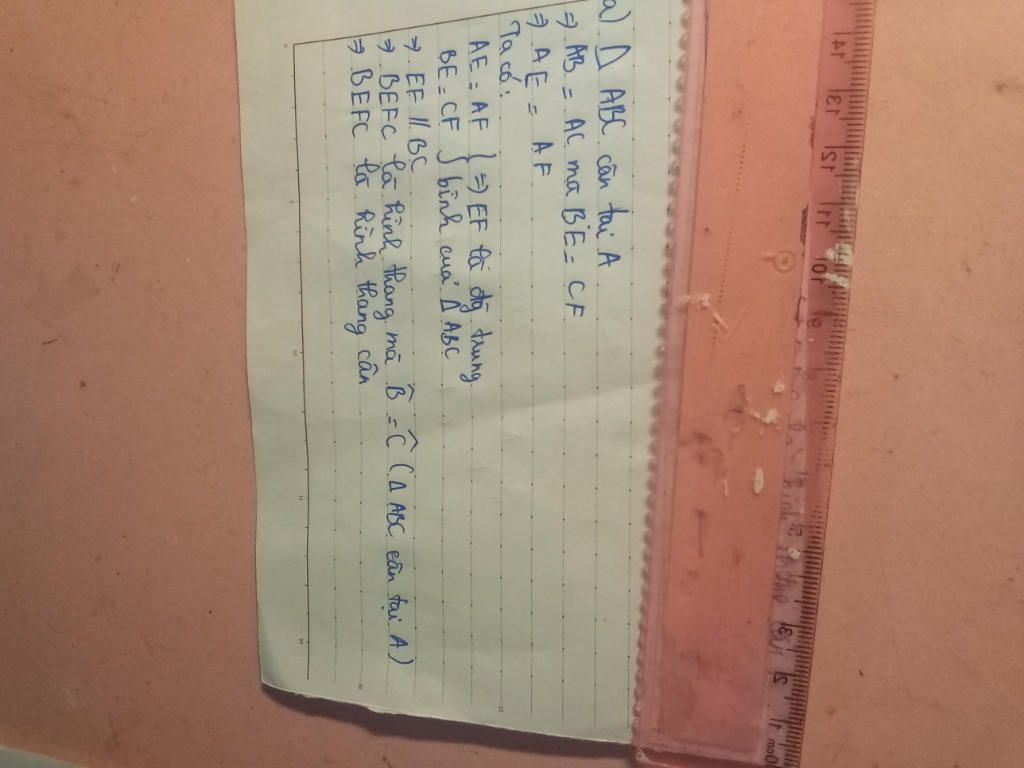 a) Δ ABC cân tại A
⇒ AB = AC mà BE = CF
⇒ AE = AF
Ta có:
AE = AF } ⇒ EF là đg trung
BE = CF } bình của Δ ABC
⇒ EF // BC
⇒ BEFC là hình thang mà B̂ = Ĉ (Δ ABC cân tại A)
⇒ BEFC là hình thang cân
14 13 12 11 10 9 8 5 3 2 1 0cm